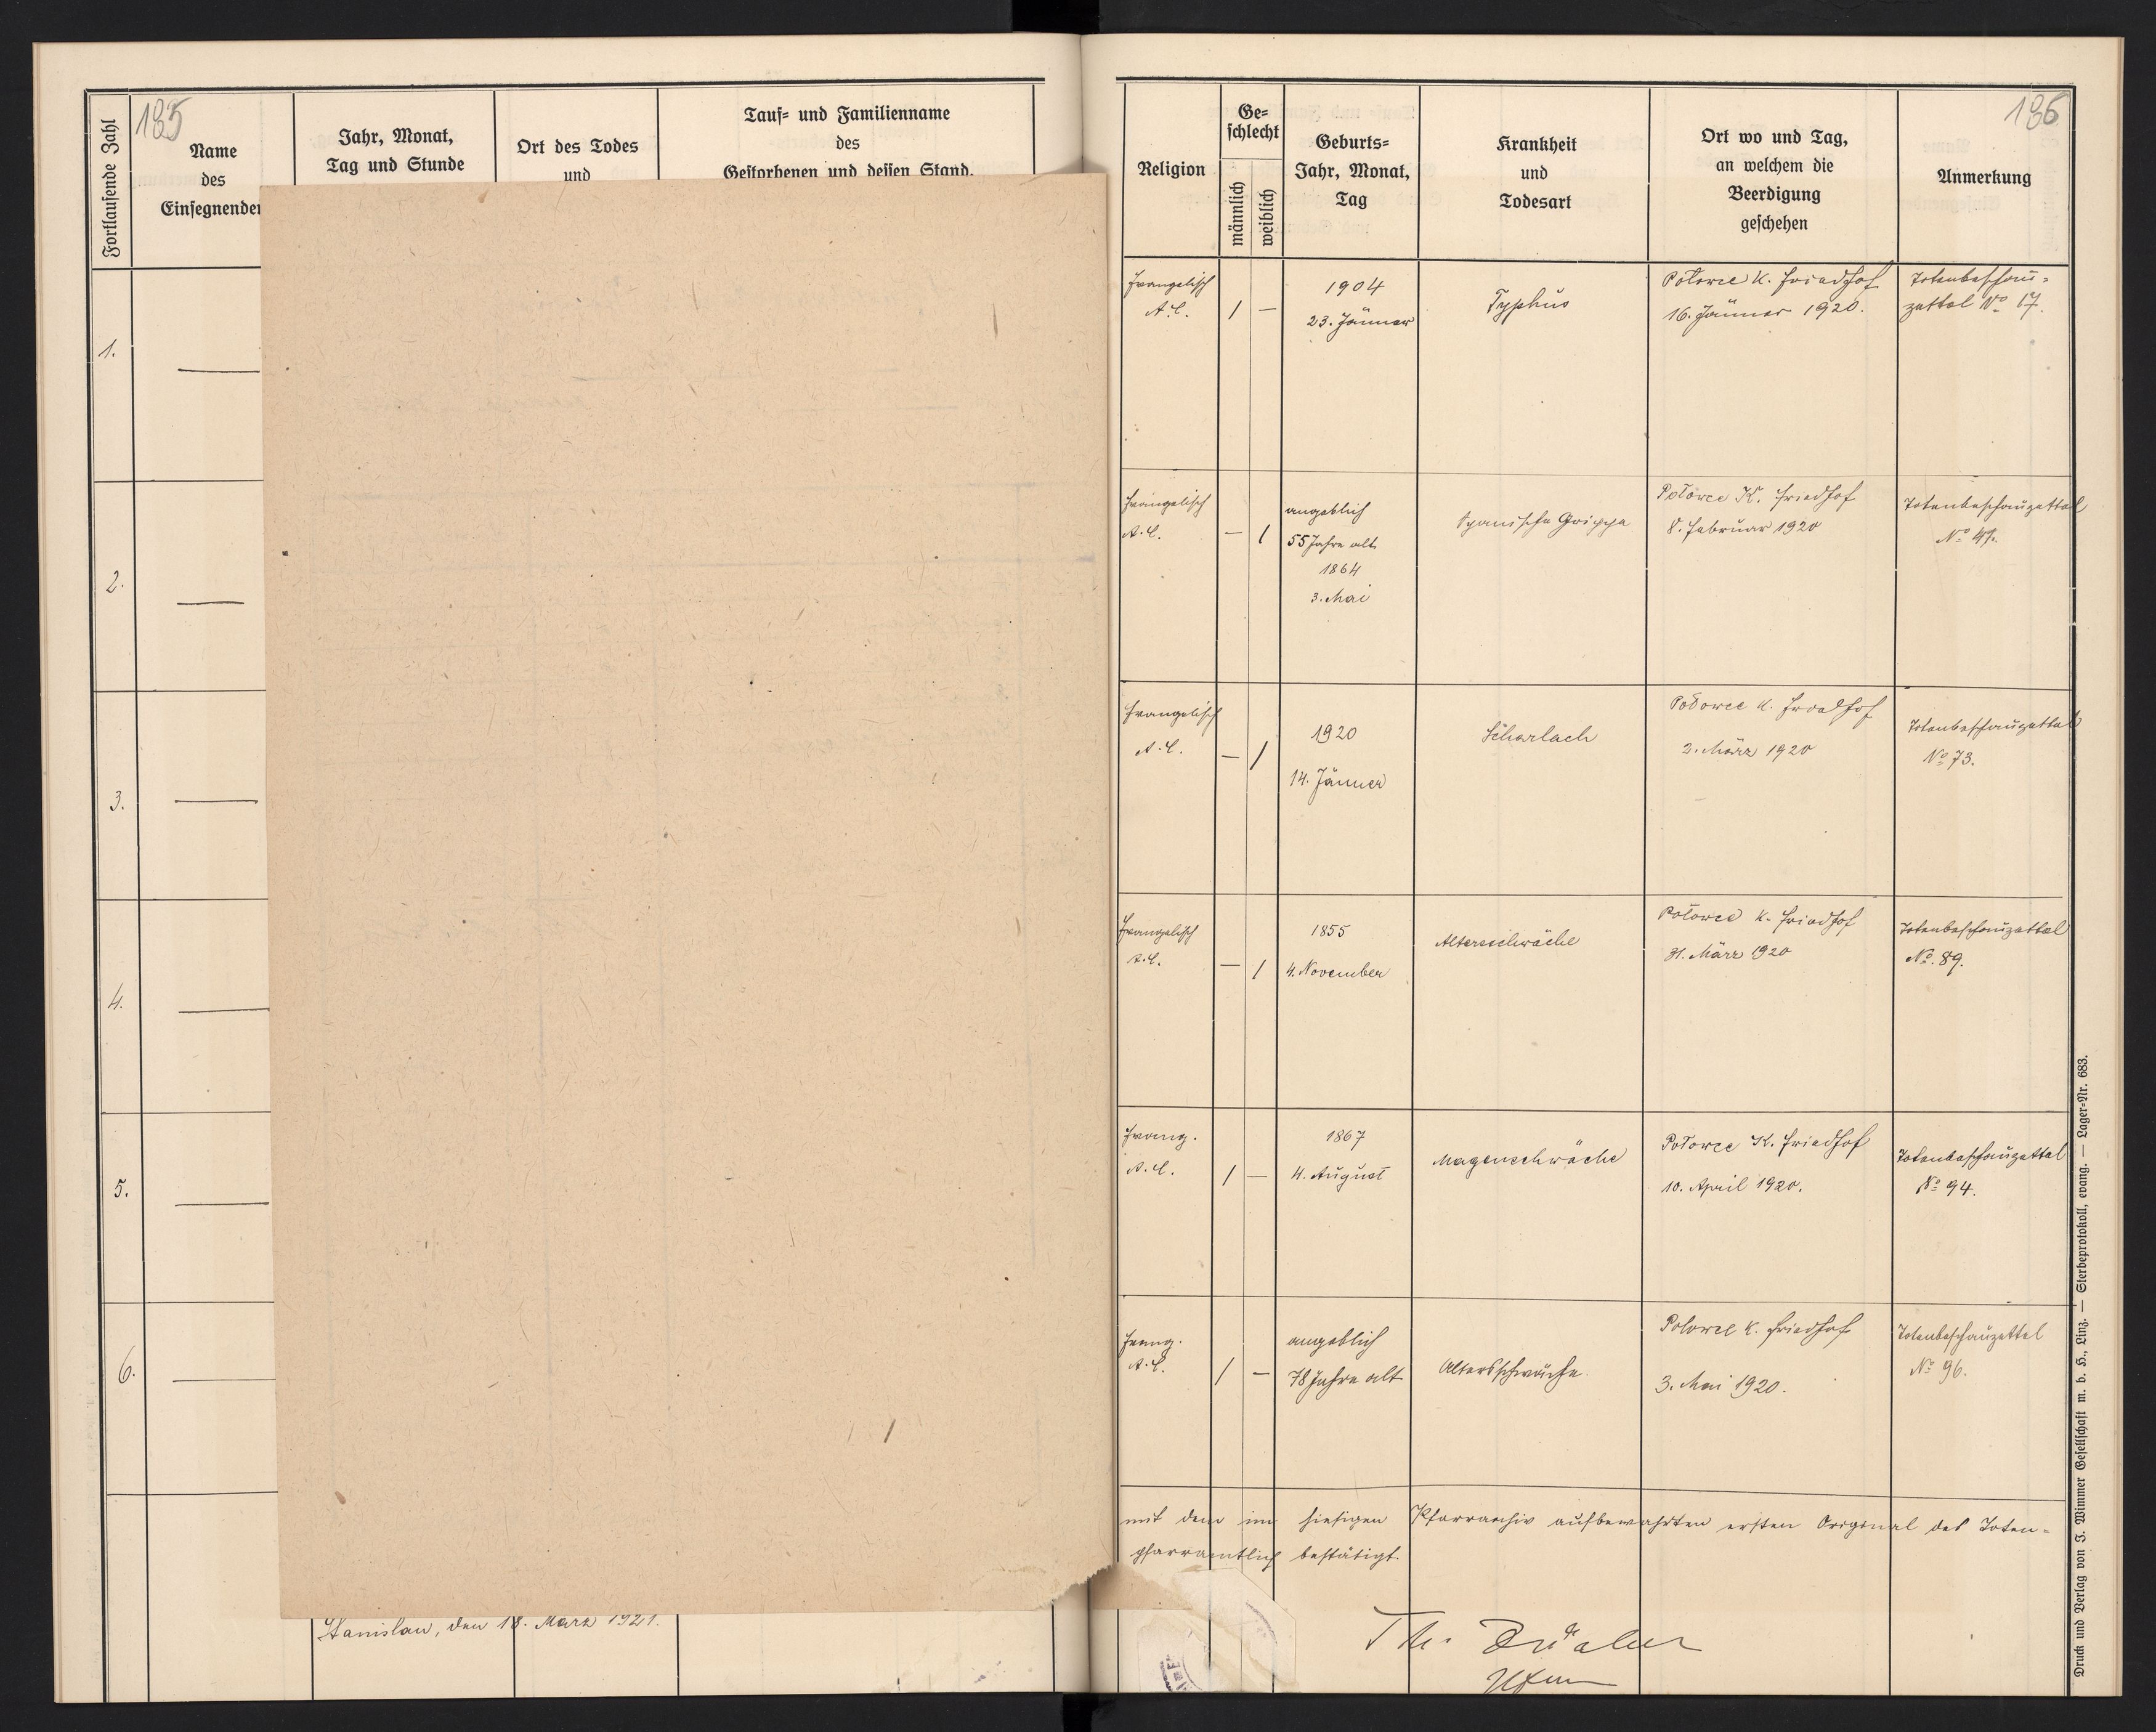 185
Fortlaufende Zahl
Name
des
Einsegnenden
Jahr, Monat,
Tag und Stunde
Ort des Todes
und
Tauf= und Familienname
des
Gestorbenen und dessen Stand,
1.
2.
3.
4.
5.
6.
Stanislau, den 18. März 1921.
186
Religion
Ge=
schlecht
männlich
weiblich
Geburts=
Jahr, Monat,
Tag
Krankheit
und
Todesart
Ort wo und Tag,
an welchem die
Beerdigung
geschehen
Anmerkung
Evangelisch
A.C.
1
—
1904
23. Jänner
Typhus
Połowce K. Friedhof
16. Jänner 1920.
Totenbeschau=
zettel No 17.
Evangelisch
A.C.
—
1
angeblich
55 Jahre alt
1864
3. Mai
Spanische Grippe
Połowce K. Friedhof
8. Februar 1920
Totenbeschauzettel
No 47.
Evangelisch
A.C.
—
1
1920
14. Jänner
Scharlach
Połowce K. Friedhof
2. März 1920
Totenbeschauzettel
No 73.
Evangelisch
A.C.
—
1
1855
4. November
Altersschwäche
Połowce K. Friedhof
31. März 1920
Totenbeschauzettel
No. 89.
Evang.
A.C.
1
—
1867
4. August
Magenschwäche
Połowce K. Friedhof
10. April 1920.
Totenbeschauzettel
No 94.
Evang.
A.C.
1
—
angeblich
78 Jahre alt
Altersschwäche.
Polowce K. Friedhof
3. Mai 1920.
Totenbeschauzettel
No 96.
mit dem im hiesigen Pfarrarchiv aufbewahrten ersten Original des Toten=
pfarramtlich bestätigt.
Druck und Verlag von J. Wimmer Gesellschaft m. b. H., Linz. — Sterbeprotokoll, evang. — Lager=Nr. 683.